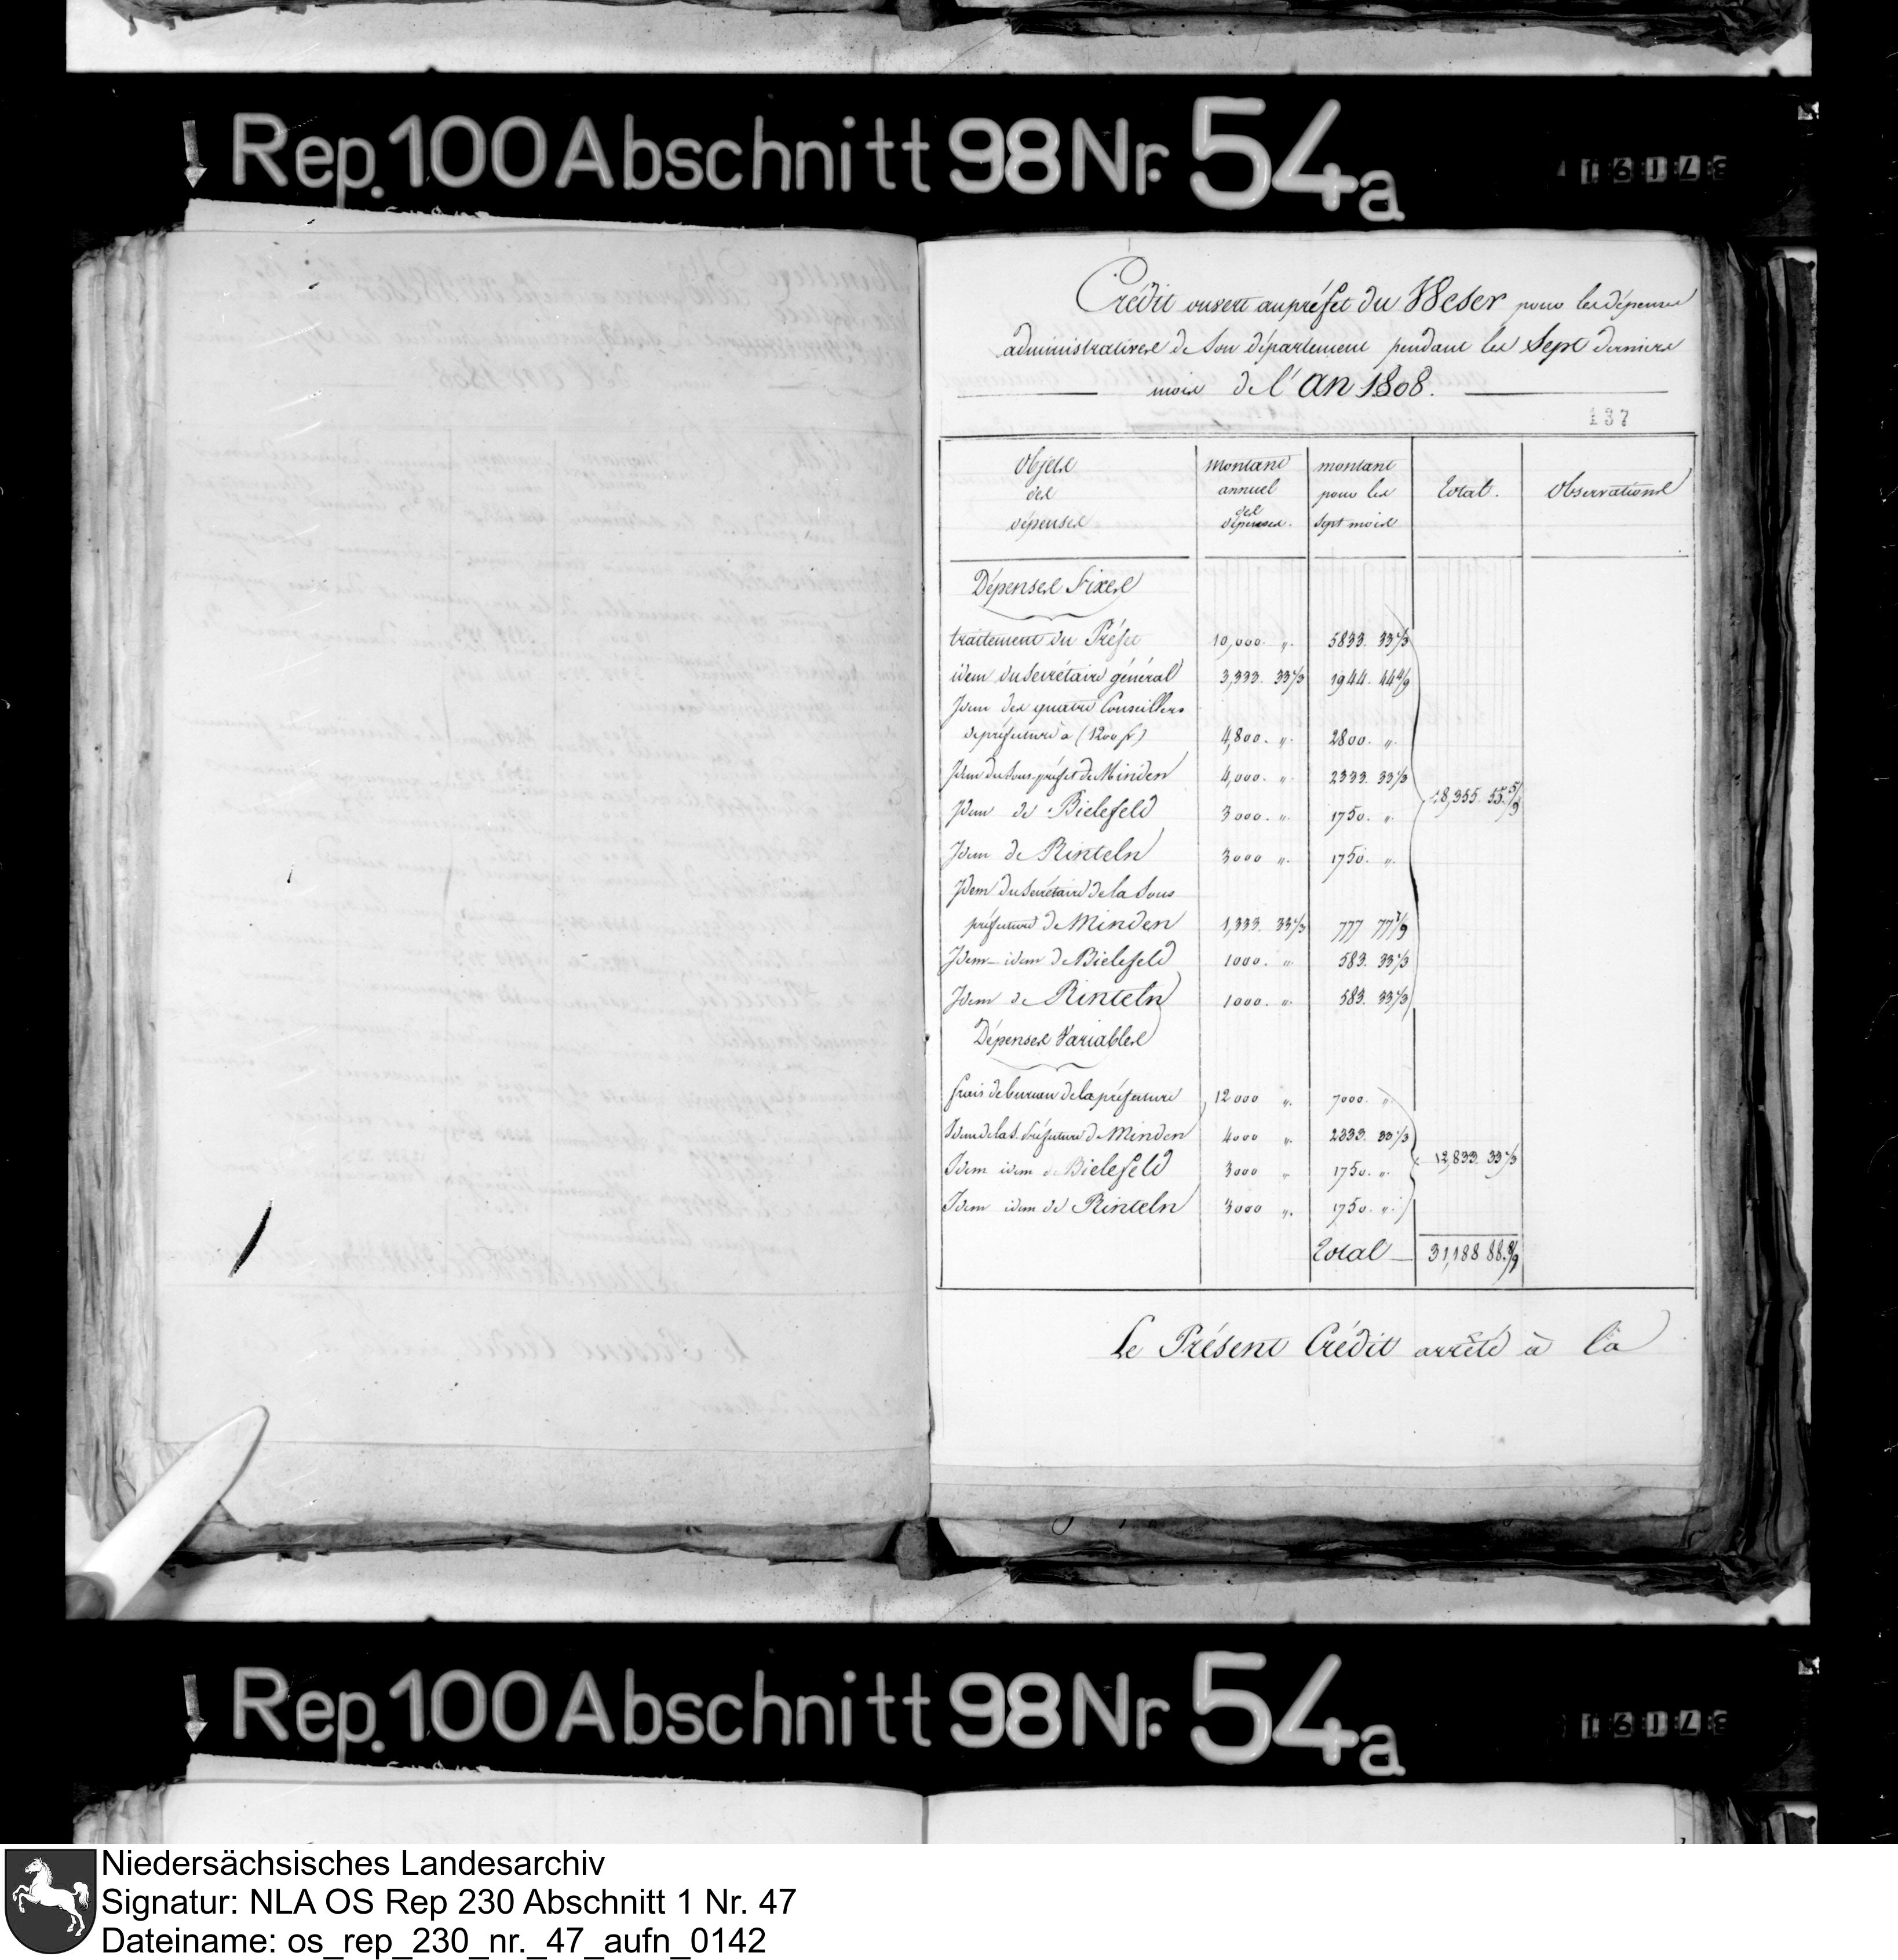 Rep. 100 Abschnitt 98 Nr. 54a
Crédit ouvert au préfet du Weser pour les dépenses
administratives de son département pendant les Sept derniers
mois de l'an 1808.
137
Objets des dépenses
montant annuel des dépenses.
montant pour les sept mois
total.
Observations
Dépenses Fixes
traitement du Préfet 10,000. „. 5833. 33 1/3
idem du secrétaire général 3,333. 33 1/3 1944. 44 4/9
Idem des quatre Conseillers
de préfecture à (1200 fr) 4,800. „. 2800. „.
Idem du Sous-préfet de Minden 4,000. „. 2333. 33 1/3
18,355. 55. 5/9
Idem de Bielefeld 3000. „. 1750. „.
Idem de Rinteln 3000 „. 1750. „.
Idem du Secrétaire de la Sous
préfecture de Minden 1,333. 33 1/3 777 77 7/9
Idem idem de Bielefeld 1000. „ 583. 33 1/3
Idem de Rinteln 1000. „. 583. 33 1/3
Dépenses Variables
frais de bureau de la préfecture 12000 „. 7000. „
Idem de la S. Préfecture de Minden 4000 „. 2333. 33 1/3
12,833. 33 1/3
Idem idem de Bielefeld 3000 „ 1750. „.
Idem idem de Rinteln 3000 „. 1750. „.
Total 31,188 88. 8/9
Le Présent Crédit arrêté à la
Rep. 100 Abschnitt 98 Nr. 54a
Niedersächsisches Landesarchiv
Signatur: NLA OS Rep 230 Abschnitt 1 Nr. 47
Dateiname: os_rep_230_nr._47_aufn_0142